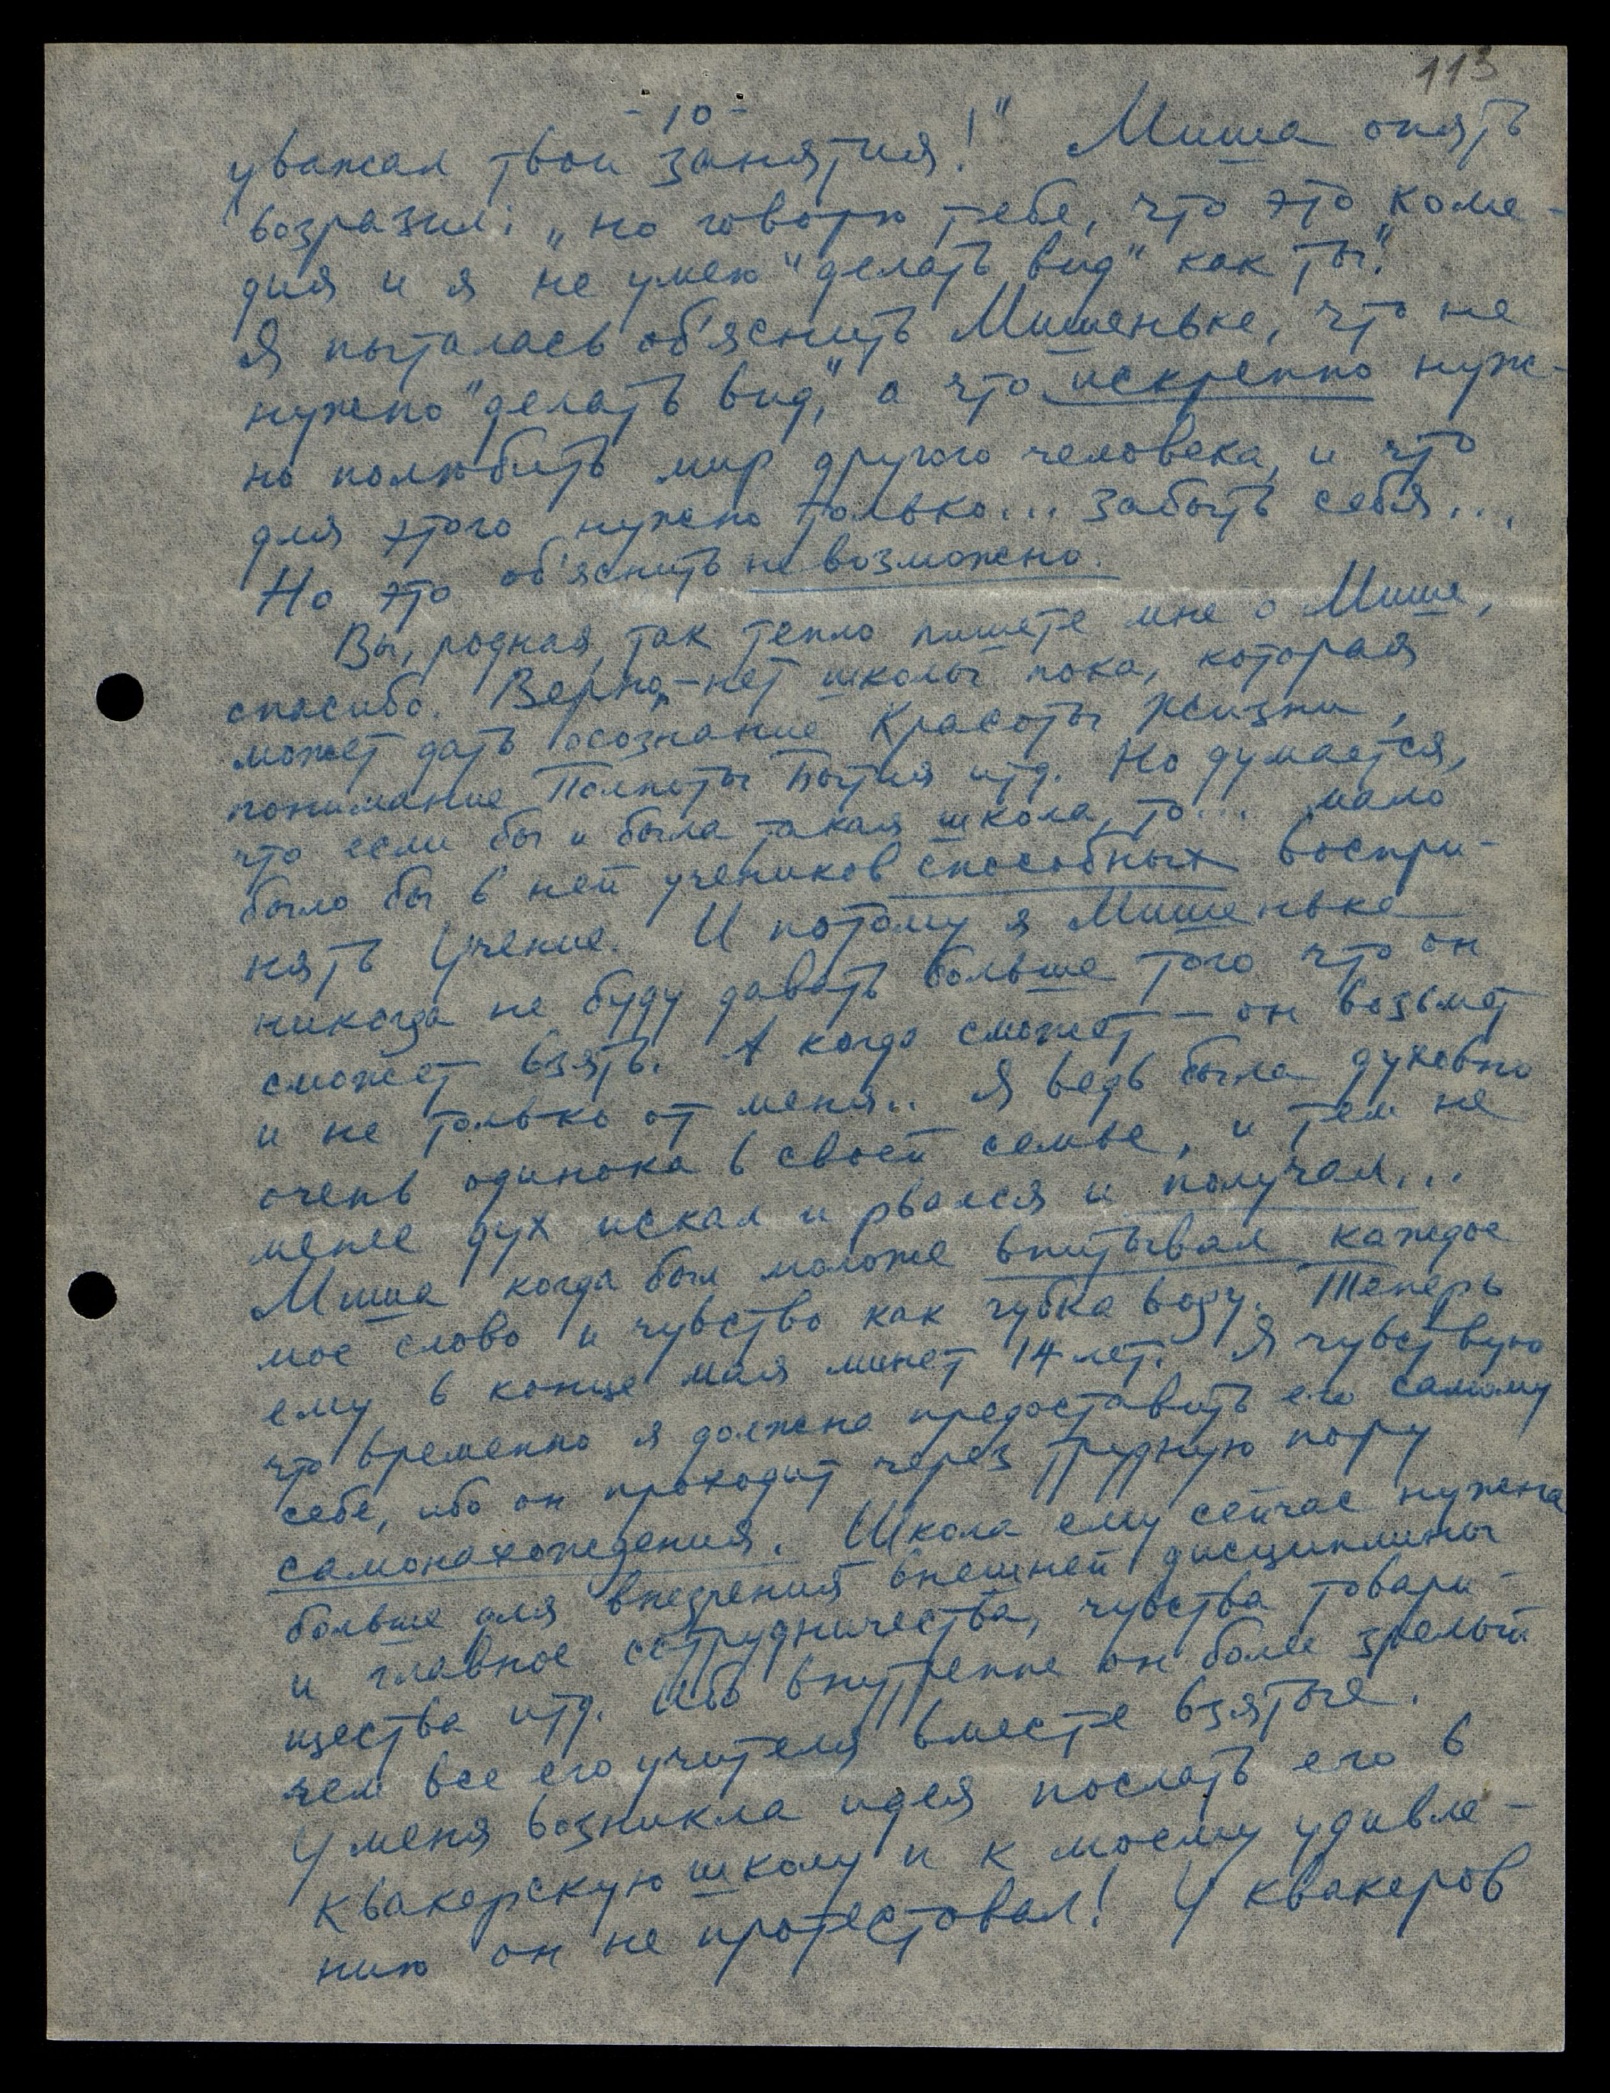 113
- 10 -
уважал твои занятия!" Миша опять
возразил: „но говорю тебе, что это коме-
дия и я не умею "делать вид" как ты".
Я пыталась об'яснить Мишеньке, что не
нужно "делать вид", а что искренно нуж-
но полюбить мир другого человека, и что
для этого нужно только... забыть себя...
Но это об'яснить невозможно.
Вы, родная, так тепло пишете мне о Мише,
спасибо. Верно, – нет школы пока, которая
может дать осознание Красоты Жизни,
понимание Полноты Бытия итд. Но думается,
что если бы и была такая школа, то... мало
было бы в ней учеников способных воспри-
нять Учение. И потому я Мишеньке
никогда не буду давать больше того что он
сможет взять. А когда сможет – он возьмет
и не только от меня.. Я ведь была духовно
очень одинока в своей семье, и тем не
менее дух искал и рвался и получал...
Миша когда был моложе впитывал каждое
мое слово и чувство как губка воду. Теперь
ему в конце мая минет 14 лет. Я чувствую
что временно я должна предоставить его самому
себе, ибо он проходит через трудную пору
самонахождения. Школа ему сейчас нужна
больше для внедрения внешней дисциплины
и главное сотрудничества, чувства товари-
щества итд. Ибо внутренне он более зрелый
чем все его учителя вместе взятые.
У меня возникла идея послать его в
квакерскую школу и к моему удивле-
нию он не протестовал! У квакеров